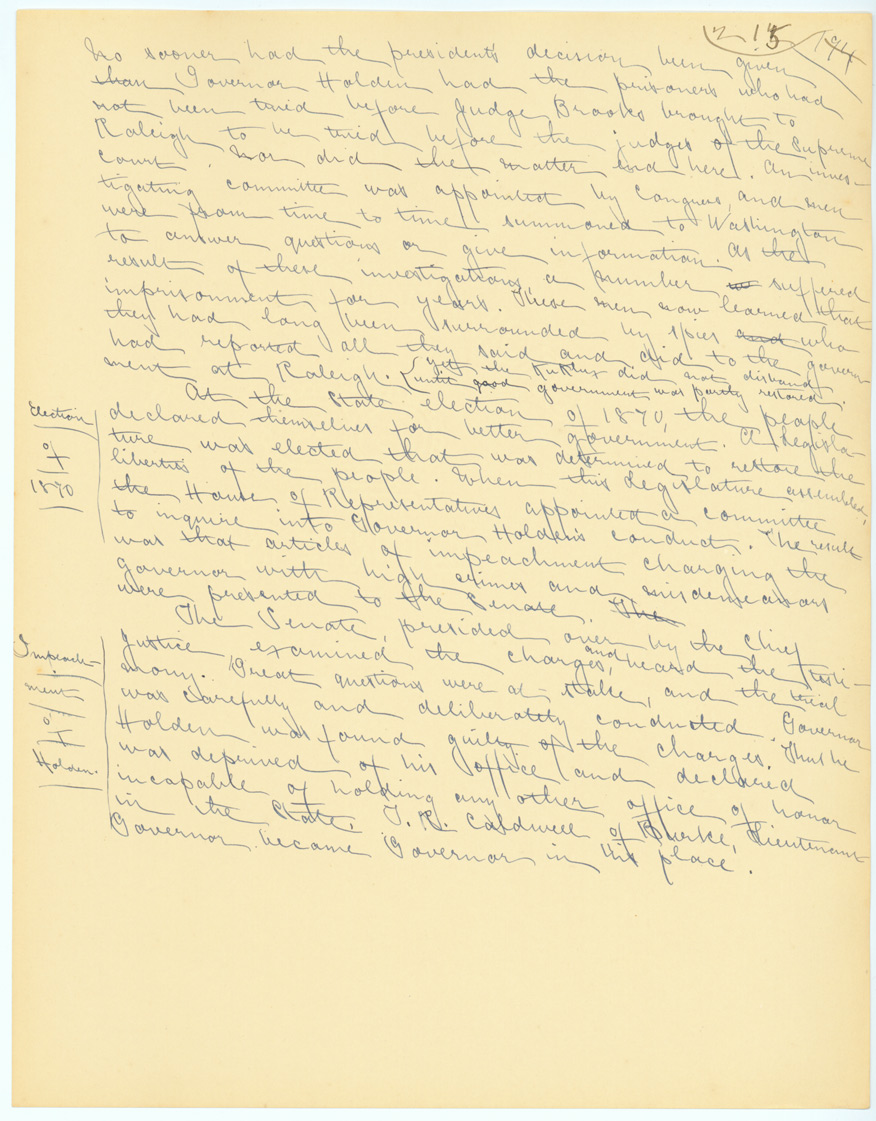 215 194
No sooner had the president's decision been given
than Governor Holden had the prisoners who had
not been tried before Judge Brooks brought to
Raleigh to be tried before the judges of the Supreme
court. Nor did the matter end here. An inves-
tigating committee was appointed by Congress, and men
were from time to time summoned to Washington
to answer questions or give information. As the
result of these investigations, a number suffered
imprisonment for years. These men now learned that
they had long been surrounded by spies and who
had reported all they said and did to the govern-
ment at Raleigh. { yet the Kuklux did not disband
until good government was partly restored.
At the state election of 1870, the people
Election
of
1870
declared themselves for better government. A Legisla-
ture was elected that was determined to restore the
liberties of the people. When this Legislature assembled,
the House of Representatives appointed a committee
to inquire into Governor Holden's conduct. The result
was that articles of impeachment charging the
governor with high crimes and misdemeanors
were presented to the Senate. The
The Senate, presided over by the Chief
Impeach-
ment
of
Holden.
Justice examined the charges, and heard the testi-
mony. Great questions were at stake, and the trial
was carefully and deliberately conducted. Governor
Holden was found guilty of the charges. That he
was deprived of his office and declared
incapable of holding any other office of honor
in the State. T. R. Caldwell of Burke, Lieutenant
Governor became Governor in his place.